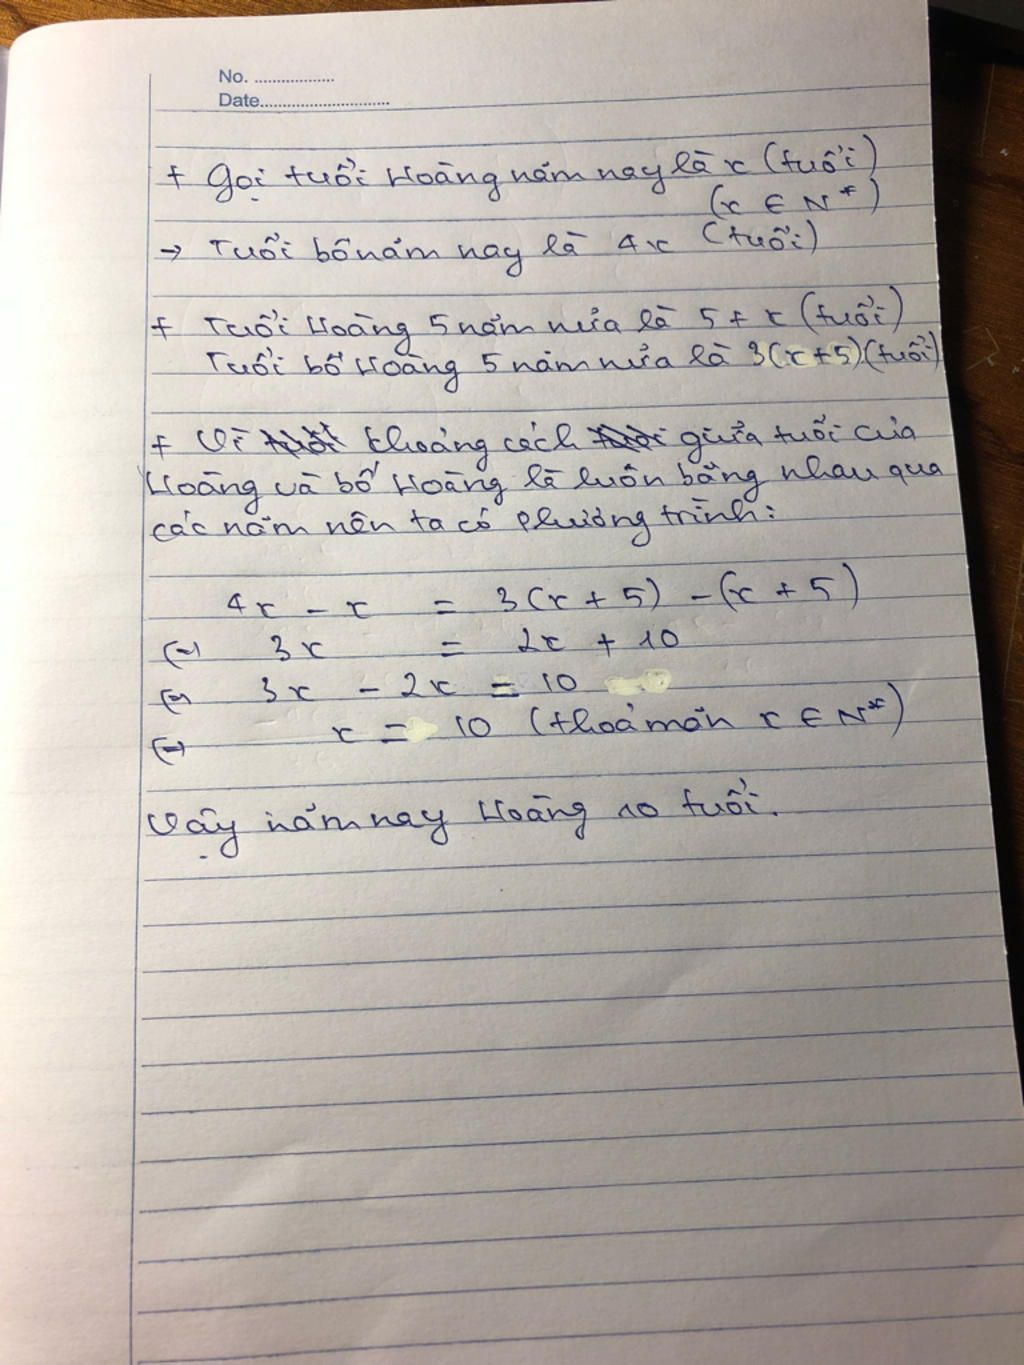 No. ..................
Date.............................
+ Gọi tuổi Hoàng năm nay là x (tuổi)
(x ∈ N*)
→ Tuổi bố năm nay là 4x (tuổi)
+ Tuổi Hoàng 5 năm nữa là 5 + x (tuổi)
Tuổi bố Hoàng 5 năm nữa là 3(x+5)(tuổi)
+ Vì khoảng cách giữa tuổi của
Hoàng và bố Hoàng là luôn bằng nhau qua
các năm nên ta có phương trình:
4x - x = 3(x + 5) - (x + 5)
(=) 3x = 2x + 10
(=) 3x - 2x = 10
(=) x = 10 (thoả mãn x ∈ N*)
Vậy năm nay Hoàng 10 tuổi.